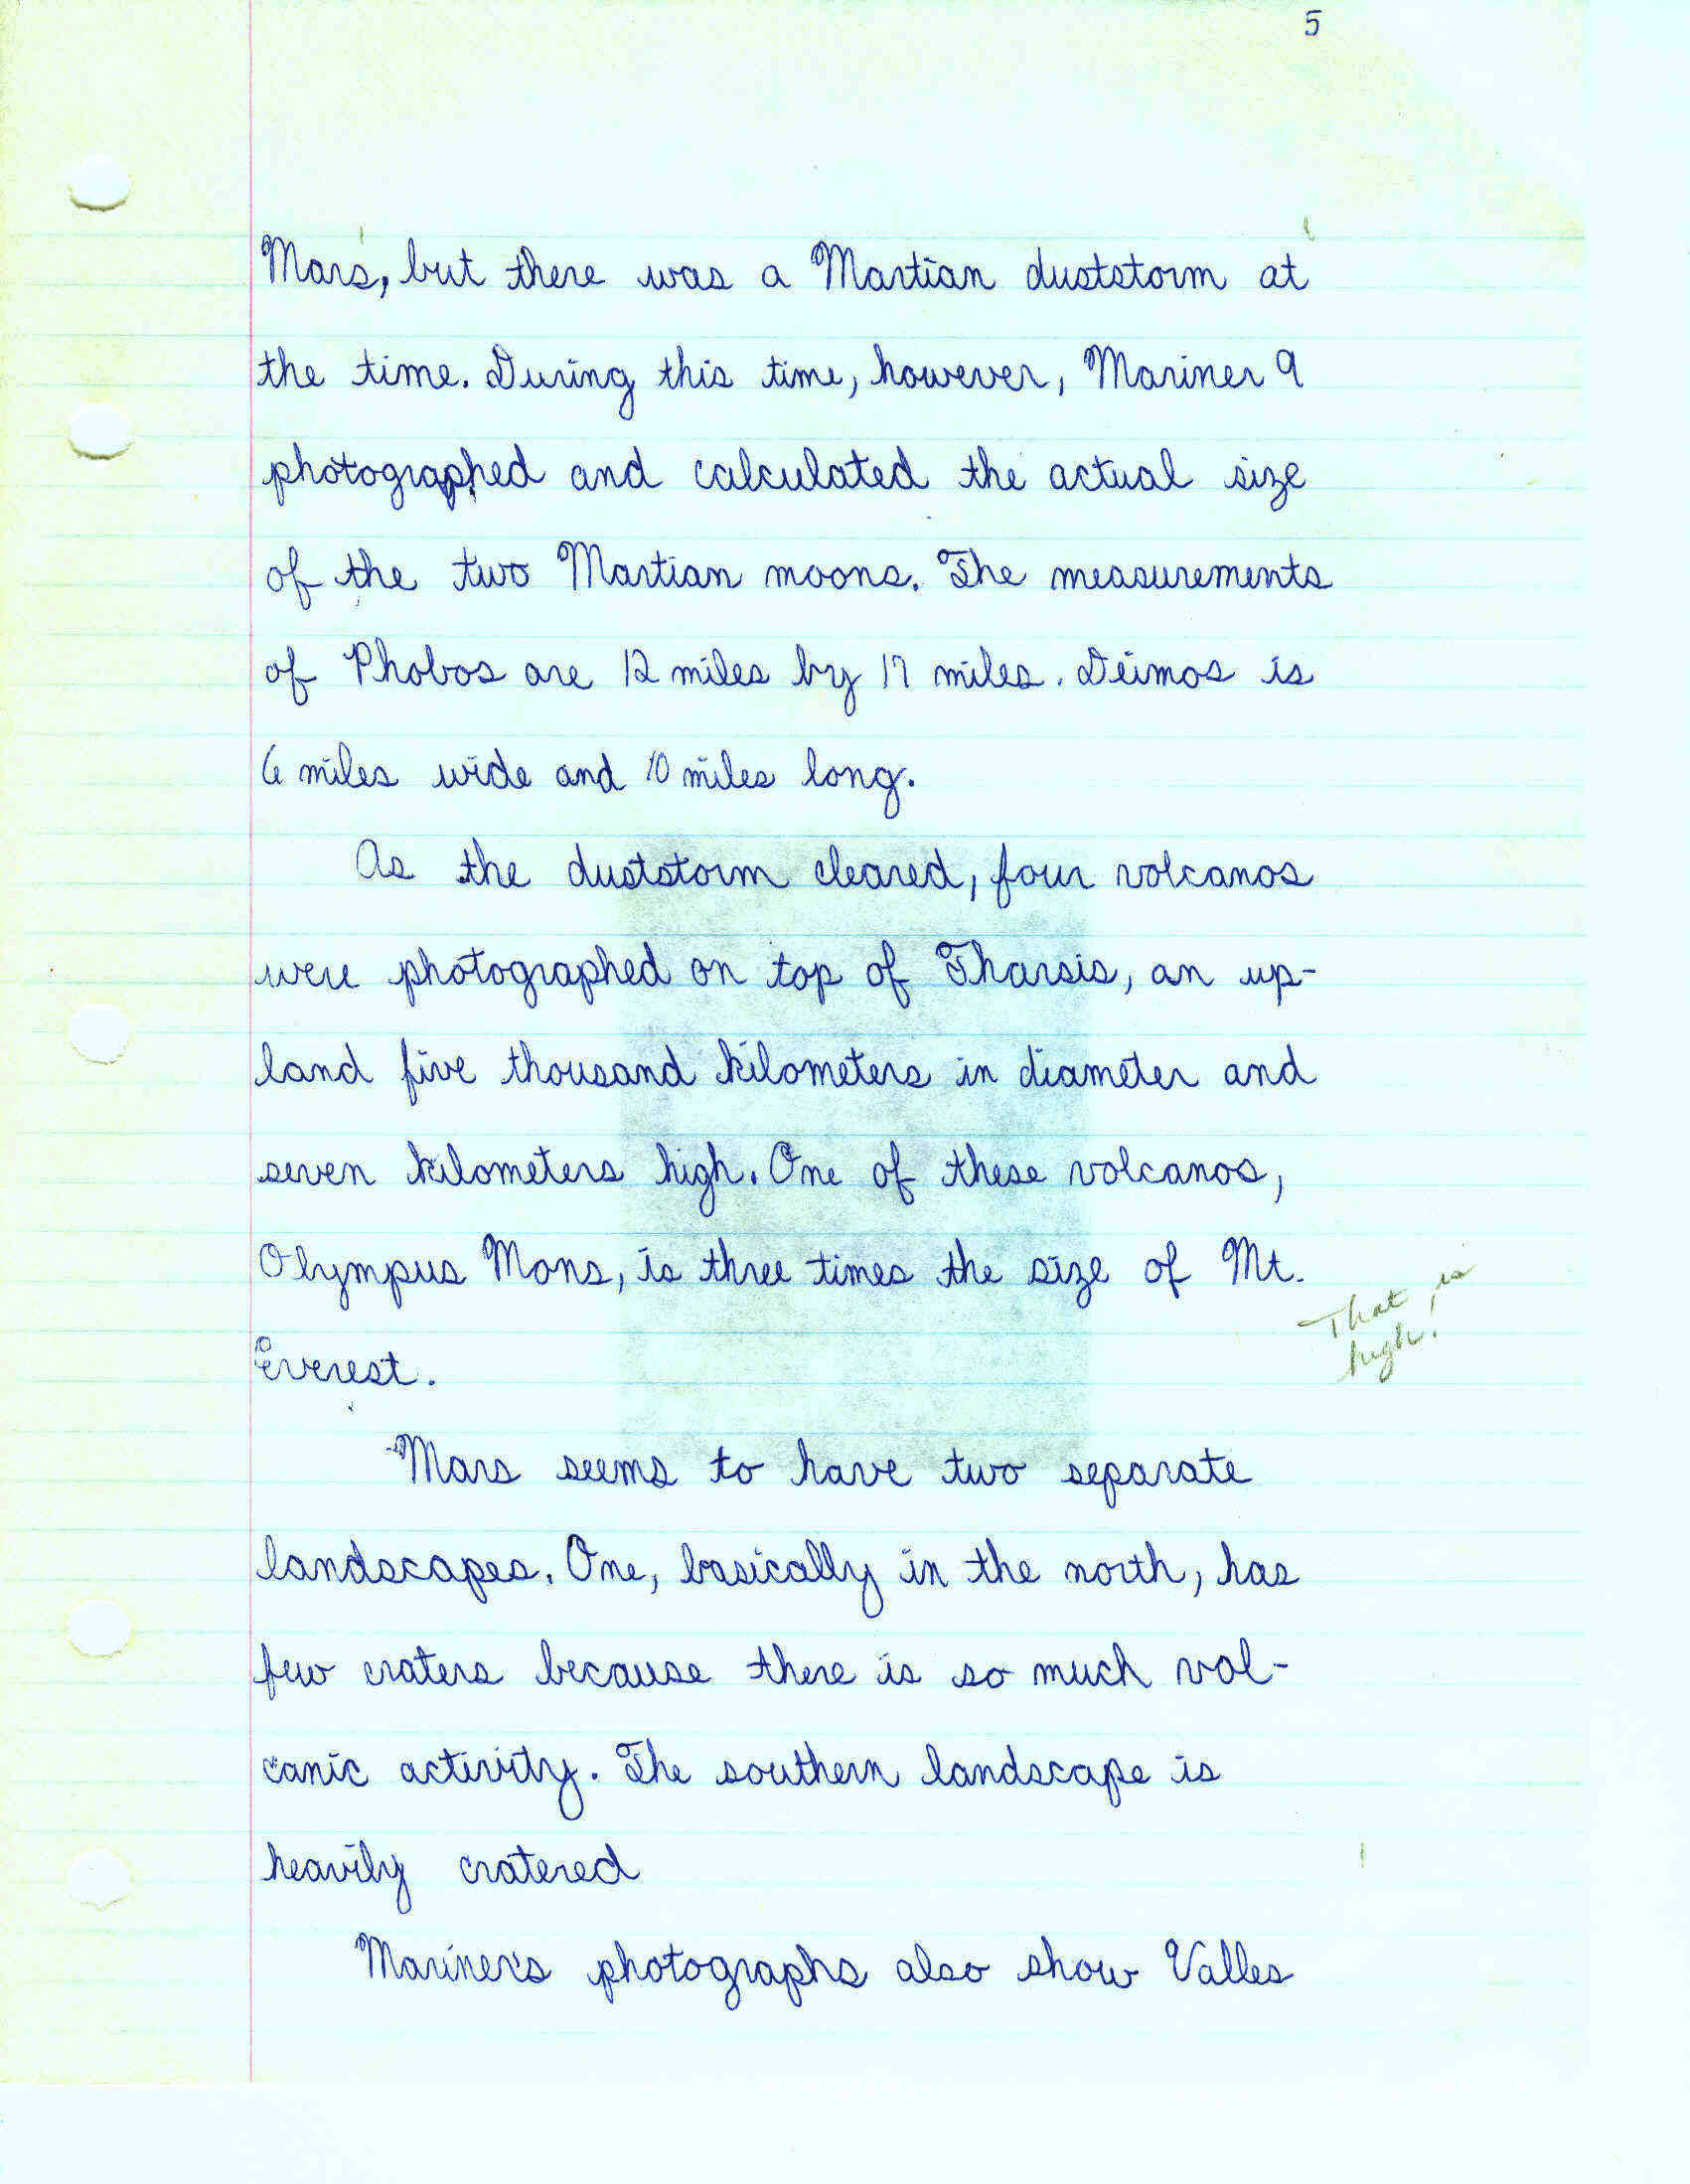 5
Mars, but there was a Martian duststorm at
the time. During this time, however, Mariner 9
photographed and calculated the actual size
of the two Martian moons. The measurements
of Phobos are 12 miles by 17 miles. Deimos is
6 miles wide and 10 miles long.
As the duststorm cleared, four volcanos
were photographed on top of Tharsis, an up-
land five thousand kilometers in diameter and
seven kilometers high. One of these volcanos,
Olympus Mons, is three times the size of Mt.
Everest.
That is
high!
Mars seems to have two separate
landscapes. One, basically in the north, has
few craters because there is so much vol-
canic activity. The southern landscape is
heavily cratered
Mariner's photographs also show Valles